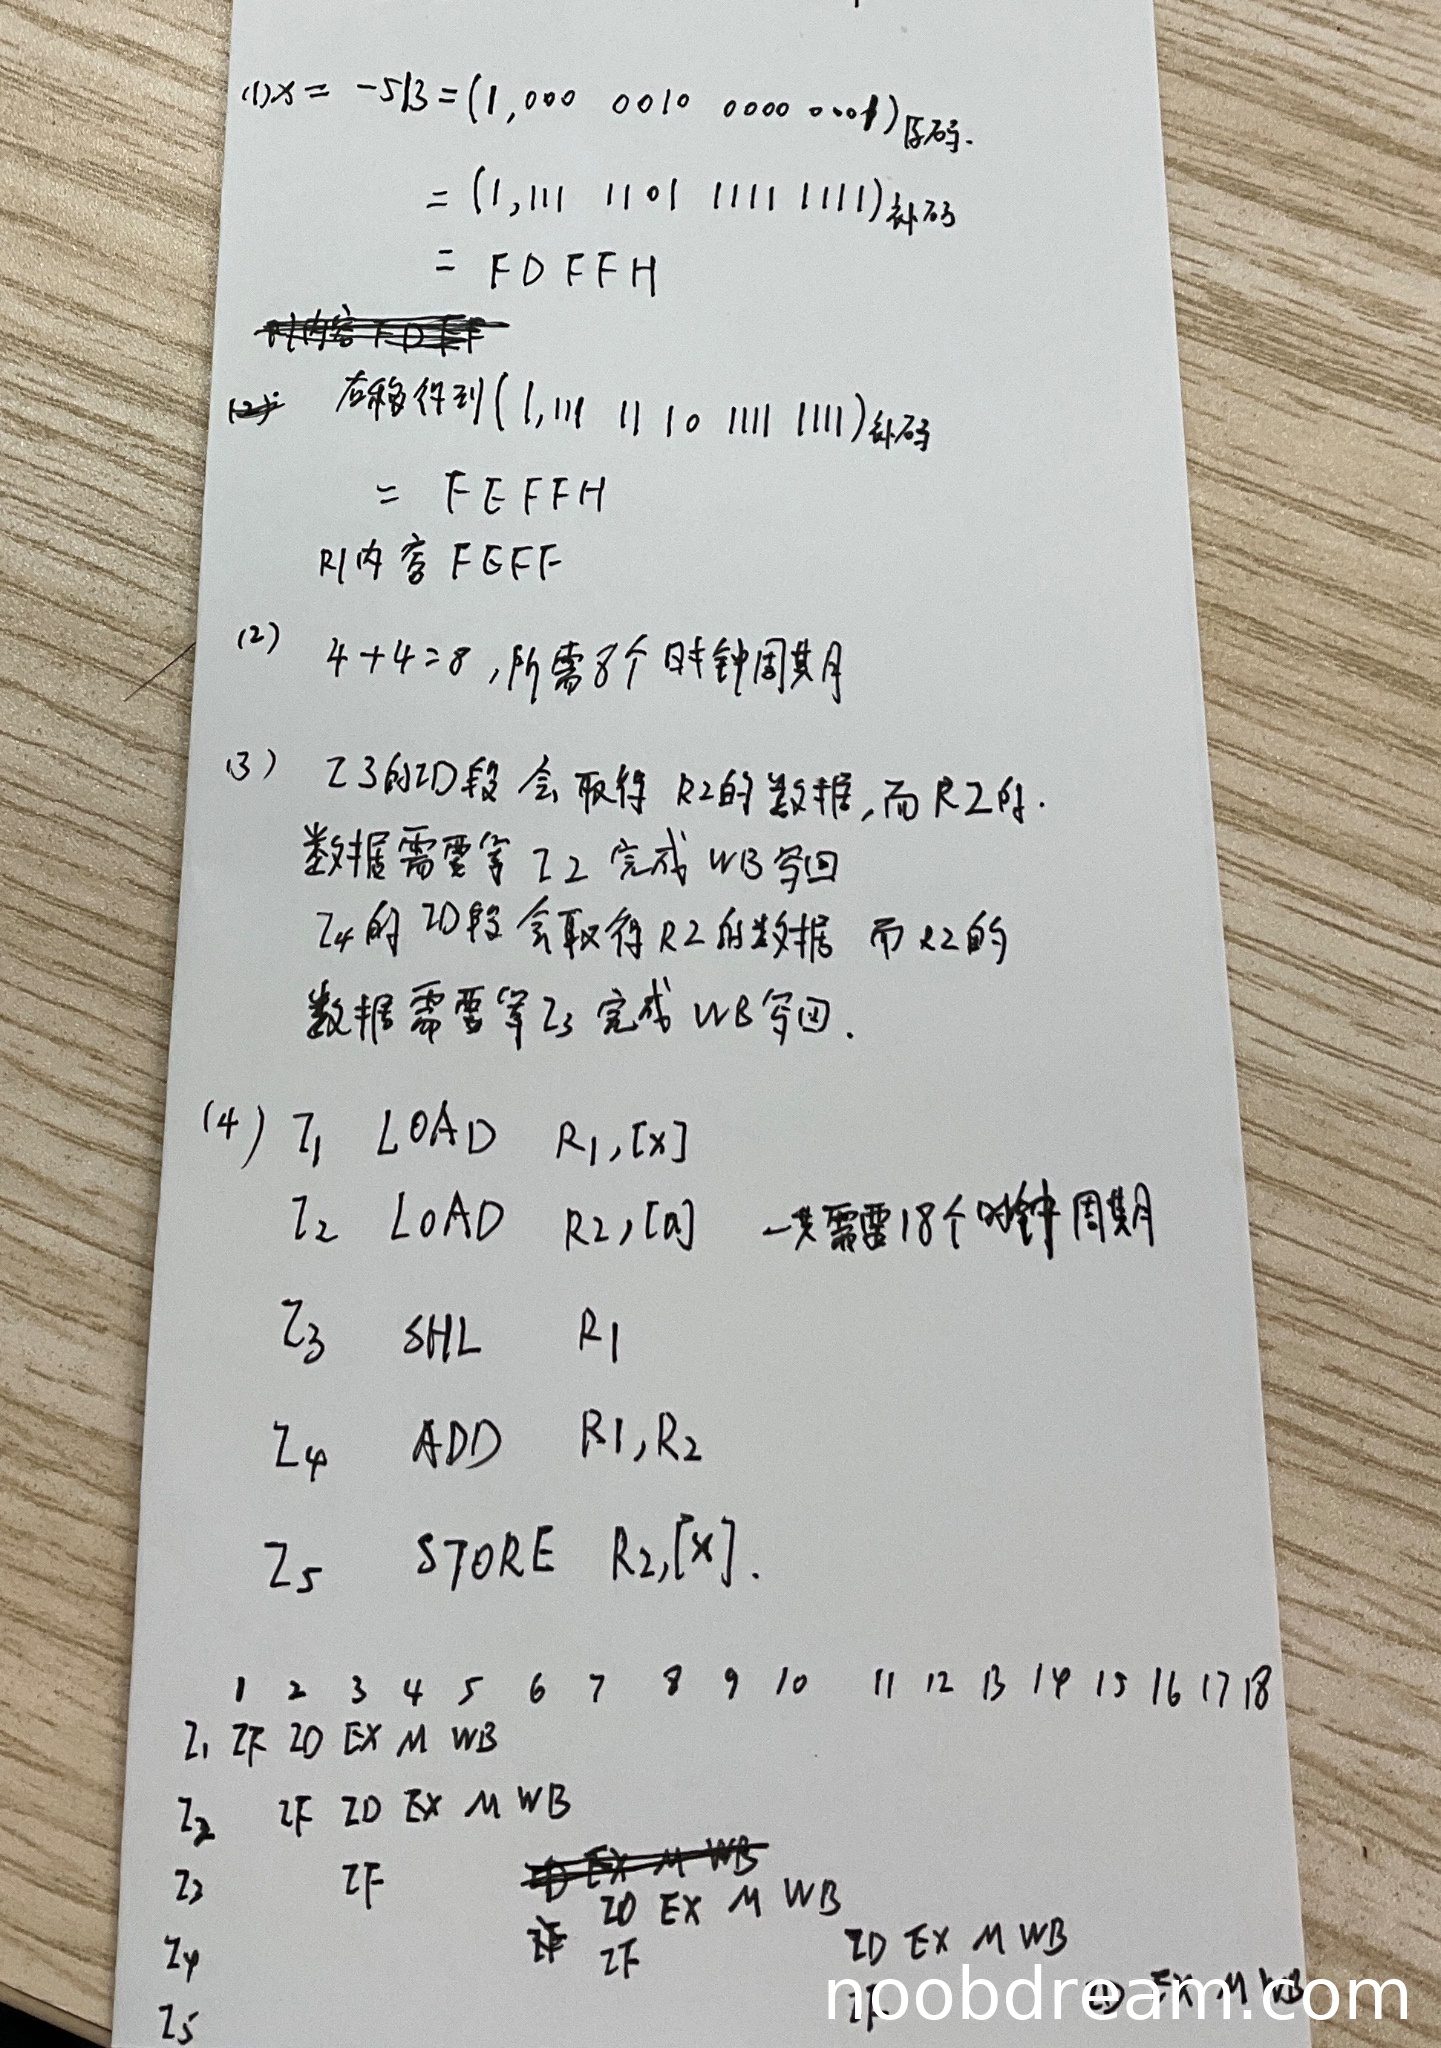 (1) x = -513 = (1,000 0010 0000 0001)原码.
= (1,111 1101 1111 1111)补码
= FDFFH
右移得到(1,111 1110 1111 1111)补码
= FEFFH
R1内容 FEFF
(2) 4+4=8,所需8个时钟周期
(3) I3的ID段会取得R2的数据,而R2的.
数据需要等I2完成WB写回
I4的ID段会取得R2的数据 而R2的
数据需要等I3完成WB写回.
(4) I1 LOAD R1,[x]
I2 LOAD R2,[a] 一共需要18个时钟周期
I3 SHL R1
I4 ADD R1,R2
I5 STORE R2,[x].
1 2 3 4 5 6 7 8 9 10 11 12 13 14 15 16 17 18
I1 IF ID EX M WB
I2 IF ID EX M WB
I3 IF ID EX M WB
I4 IF ID EX M WB
I5 IF ID EX M WB
noobdream.com